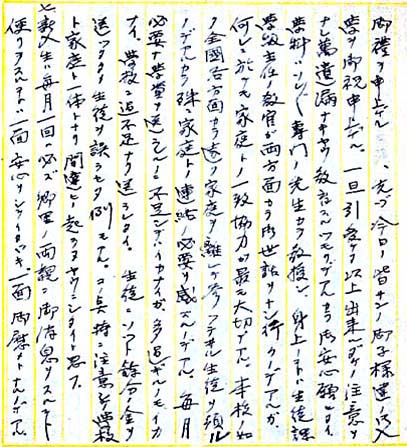 御禮ヲ申上ゲル 先ヅ今日ノ皆サンノ御子様達ノ御入
学ヲ御祝申上ゲル、一旦引受ケタ以上出来ルダケ注意ヲ
ナシ萬遺漏ナキヤウ教育スルツモリデアルカラ御安心願ヒタイ
学科ハソレゾレ専門ノ先生カラ教授シ、身上ノコトハ生徒課
学級主任ノ教官ガ両方面カラ御世話ヲナシ行クノデアルガ、
何レニ於テモ家庭トノ一致協力ガ最モ大切デアル。本校ノ如
ク全國各方面カラ遠ク家庭ヲ離レテ参ツテオル生徒ヲ預ル
ノデアルカラ殊ニ家庭トノ連絡ノ必要ヲ感ズルノデアル。毎月
必要ナ学資ヲ送ラレルノニ不足シテハイカナイガ、多過ギルモイカ
ナイ、学校ニ過不足ナク送ラレタイ。生徒ニソツト餘分ノ金ヲ
送ツテ生徒ヲ誤ラセタ例モアル。コノ点特ニ注意シ学校
ト家庭ト一体トナリ間違ヒノ起ラヌヤウニシタイト思フ。
生ハ毎月一回ハ必ズ郷里ノ両親ニ御消息ヲスルコト
便リヲスルコトハ一面安心